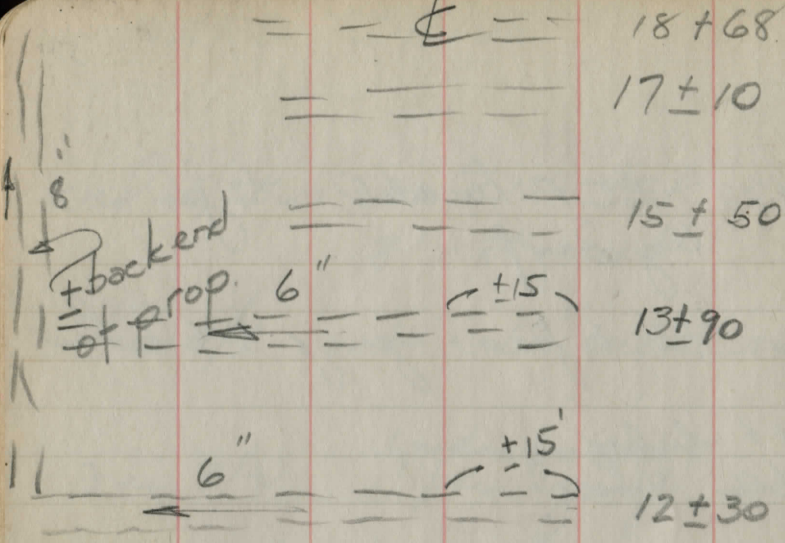 ℄ 18 + 68
17 ± 10
8"
15 ± 50
± backend
of prop.
6" ±15 13±90
6" +15' 12±30